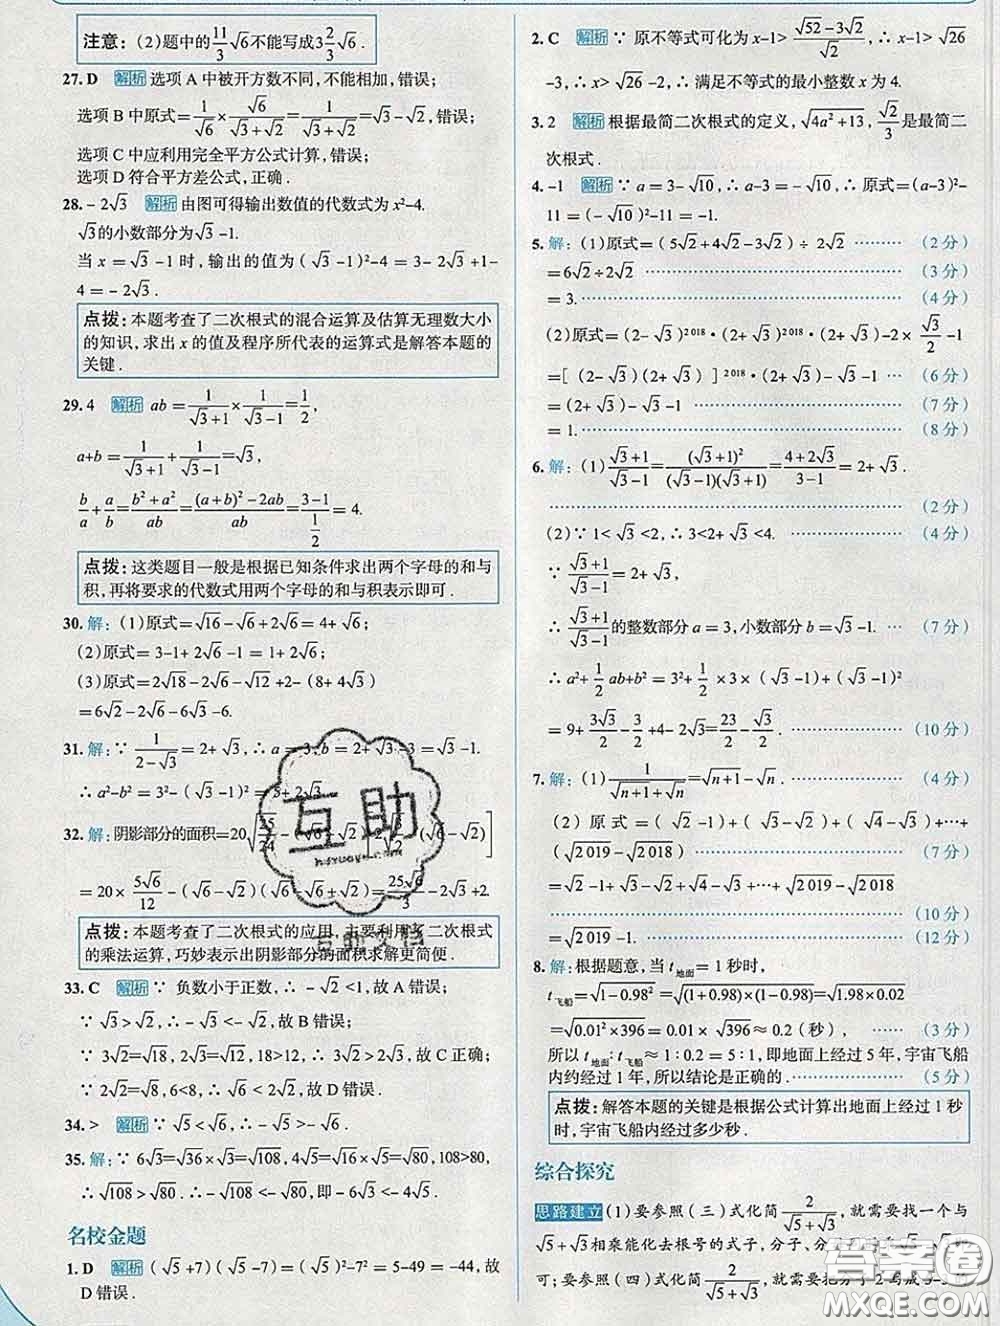 注意：(2)题中的11/3√6不能写成3 2/3√6.
27. D 解析 选项A中被开方数不同,不能相加,错误;
选项B中原式=1/√6×√6/(√3+√2)=1/(√3+√2)=√3-√2,错误;
选项C中应利用完全平方公式计算,错误;
选项D符合平方差公式,正确.
28. -2√3 解析 由图可得输出数值的代数式为x²-4.
√3的小数部分为√3-1.
当x=√3-1时,输出的值为(√3-1)²-4=3-2√3+1-
4=-2√3.
点拨：本题考查了二次根式的混合运算及估算无理数大小
的知识,求出x的值及程序所代表的运算式是解答本题的
关键.
29. 4 解析 ab=1/(√3+1)×1/(√3-1)=1/2,
a+b=1/(√3+1)+1/(√3-1)=√3,
b/a+a/b=(b²+a²)/ab=((a+b)²-2ab)/ab=(3-1)/(1/2)=4.
点拨：这类题目一般是根据已知条件求出两个字母的和与
积,再将要求的代数式用两个字母的和与积表示即可.
30. 解：(1)原式=√16-√6+2√6=4+√6;
(2)原式=3-1+2√6-√6=2+√6;
(3)原式=2√18-2√6-√12+2-(8+4√3)
=6√2-2√6-6√3-6.
31. 解：∵1/(2-√3)=2+√3,∴a=3,b=2+√3-3=√3-1.
∴a²-b²=3²-(√3-1)²=5+2√3.
32. 解：阴影部分的面积=20√(25/24)-(√6-√2)
=20×5√6/12-(√6-√2)(√6-√6+√2)=25√6/3-2√3+2.
点拨：本题考查了二次根式的应用,主要利用了二次根式
的乘法运算,巧妙表示出阴影部分的面积求解更简便.
33. C 解析 ∵负数小于正数,∴-√2<1,故A错误;
∵√3>√2,∴-√3<-√2,故B错误;
∵3√2=√18,2√3=√12,18>12,∴3√2>2√3,故C正确;
∵2√2=√8,6<8,∴√6<2√2,故D错误.
34. > 解析 ∵√5<√6,∴-√5>-√6.
35. 解：∵6√3=√36×√3=√108,4√5=√16×√5=√80,108>80,
∴√108>√80.∴-√108<-√80,即-6√3<-4√5.
名校金题
1. D 解析 (√5+7)(√5-7)=(√5)²-7²=5-49=-44,故
D错误.
2. C 解析 ∵原不等式可化为x-1>(√52-3√2)/√2,∴x-1>√26
-3,∴x>√26-2,∴满足不等式的最小整数x为4.
3. 2 解析 根据最简二次根式的定义,√(4a²+13),√2/3是最简二
次根式.
4. -1 解析 ∵a=3-√10,∴a-3=-√10,∴原式=(a-3)²-
11=(-√10)²-11=-1.
5. 解：(1)原式=(5√2+4√2-3√2)÷2√2 ……… (2分)
=6√2÷2√2 ……… (3分)
=3. ……… (4分)
(2)原式=(2-√3)²⁰¹⁸·(2+√3)²⁰¹⁸·(2+√3)-2×√3/2-1
=[(2-√3)(2+√3)]²⁰¹⁸·(2+√3)-√3-1 … (6分)
=(2+√3)-√3-1 ……… (7分)
=1. ……… (8分)
6. 解：(1)(√3+1)/(√3-1)=(√3+1)²/((√3-1)(√3+1))=(4+2√3)/(3-1)=2+√3.
……… (2分)
(2)∵1<√3<2,∴3<2+√3<4. ……… (4分)
∵(√3+1)/(√3-1)=2+√3,
∴(√3+1)/(√3-1)的整数部分a=3,小数部分b=√3-1. …… (7分)
∴a²+1/2ab+b²=3²+1/2×3×(√3-1)+(√3-1)²
=9+3√3/2-3/2+4-2√3=23/2-√3/2. ……… (10分)
7. 解：(1)1/(√(n+1)+√n)=√(n+1)-√n. ……… (4分)
(2)原式=(√2-1)+(√3-√2)+(√4-√3)+…+
(√2019-√2018) ……… (7分)
=√2-1+√3-√2+√4-√3+…+√2019-√2018
……… (10分)
=√2019-1. ……… (12分)
8. 解：根据题意,当t地面=1秒时,
t飞船=√(1-0.98²)=√((1+0.98)×(1-0.98))=√(1.98×0.02)
=√(0.01²×396)=0.01×√396≈0.2(秒), …… (3分)
所以t地面∶t飞船≈1∶0.2=5∶1,即地面上经过5年,宇宙飞船
内约经过1年,所以结论是正确的. ……… (5分)
点拨：解答本题的关键是根据公式计算出地面上经过1秒
时,宇宙飞船内经过多少秒.
综合探究
思路建立 (1)要参照(三)式化简2/(√5+√3),就需要找一个与
√5+√3相乘能化去根号的式子,分子、
可;要参照(四)式化简2/(√5+√3),就需要把分子2写成5-3的
互助
互助文档
答案圈
MXQE.COM